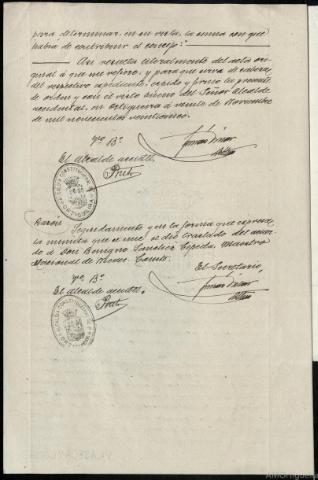 para determinar, en su vista, la suma con que
había de contribuir el concejo:
Así resulta literalmente del acta ori-
ginal á que me refiero, y para que sirva de cabeza
del respectivo expediente, expido y firmo la presente
de orden y con el visto bueno del Señor Alcalde
accidental, en Ortigueira á veinte de Noviembre
de mil novecientos veinticinco.
Vº Bº
El alcalde accidtl.
Razón
Seguidamente y en la forma que expresa
la minuta que se une se dió traslado del acuer-
do á Don Benigno Sánchez Cepeda, Maestro
Nacional de
El Secretario,
Vº Bº
El alcalde accidtl.